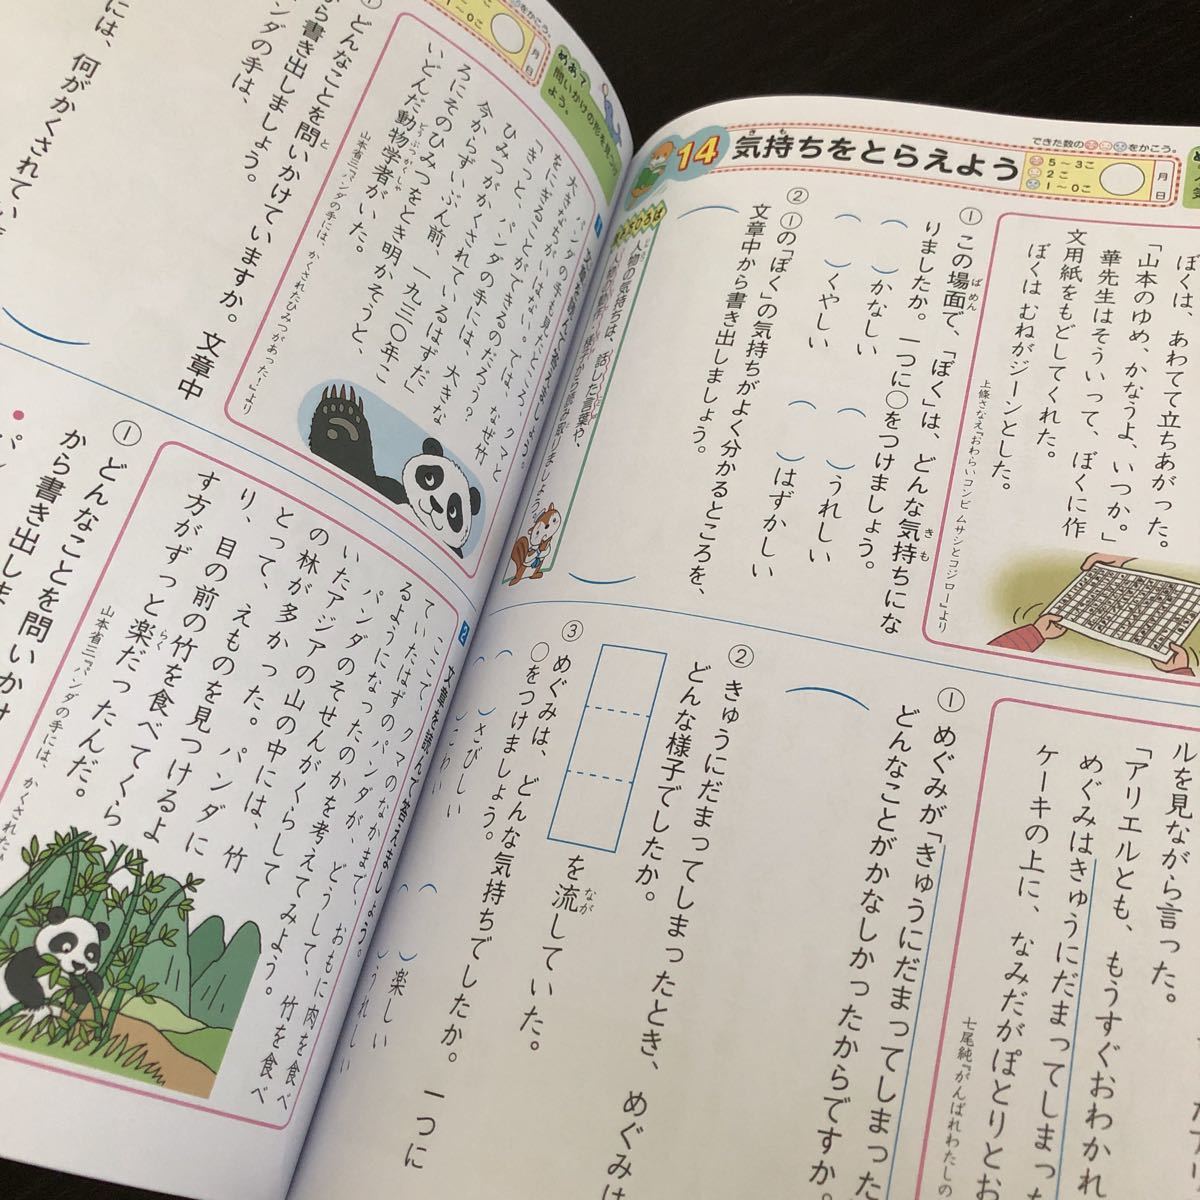 14
気持ちをとらえよう
きも
できた数の
をかこう。
5～3こ
2こ
1～0こ
月
日
ぼくは、あわてて立ちあがった。
「山本のゆめ、かなうよ、いつか。」
華先生はそういって、ぼくに作
文用紙をもどしてくれた。
ぼくは むねがジーンとした。
上條さなえ『おわらいコンビ ムサシとコジロー』より
① この場面で、「ぼく」は、どんな気持ちにな
ばめん
きも
りましたか。一つに○をつけましょう。
（　）かなしい
（　）うれしい
（　）くやしい
（　）はずかしい
② ①の「ぼく」の気持ちがよく分かるところを、
文章中から書き出しましょう。
人物の気持ちは、話した言葉や、
ルを見ながら言った。
「アリエルとも、もうすぐおわかれ
めぐみはきゅうにだまってしまっ
ケーキの上に、なみだがぽとりとお
七尾純『がんばれわたしの
① めぐみが「きゅうにだまってしまった
どんなことがかなしかったからですか。
② きゅうにだまってしまったとき、めぐみは
どんな様子でしたか。
を流していた。
なが
③ めぐみは、どんな気持ちでしたか。一つに
○をつけましょう。
（　）さびしい
（　）楽しい
（　）こわい
（　）うれしい
をかこう。
1～0こ
月
日
めあて
問いかけの形を
よう。
1
パンダの手も見たところ、クマと
大きなちがいはない。では、なぜ竹
をにぎることができるのだろう？
「きっと、パンダの手には、大きな
ひみつがかくされているはずだ」
今からずいぶん前、一九三〇年こ
ろにそのひみつをとき明かそうと、
いどんだ動物学者がいた。
どうぶつがくしゃ
山本省三『パンダの手には、かくされたひみつがあった！』より
① どんなことを問いかけていますか。文章中
と
から書き出しましょう。
ンダの手は、
には、何がかくされていた
2
文章を読んで答えましょう。
ここで、クマのなかまで、おもに肉を食べ
ていたはずのパンダが、どうして、竹を食べ
るようになったのかを考えてみよう。
パンダのそせんがくらして
いたアジアの山の中には、竹
の林が多かった。パンダに
とって、えものを見つけるよ
り、目の前の竹を食べてくら
す方がずっと楽だったんだ。
らく
山本省三『パンダの手には、かくされた
① どんなことを問いかけ
から書き出しま